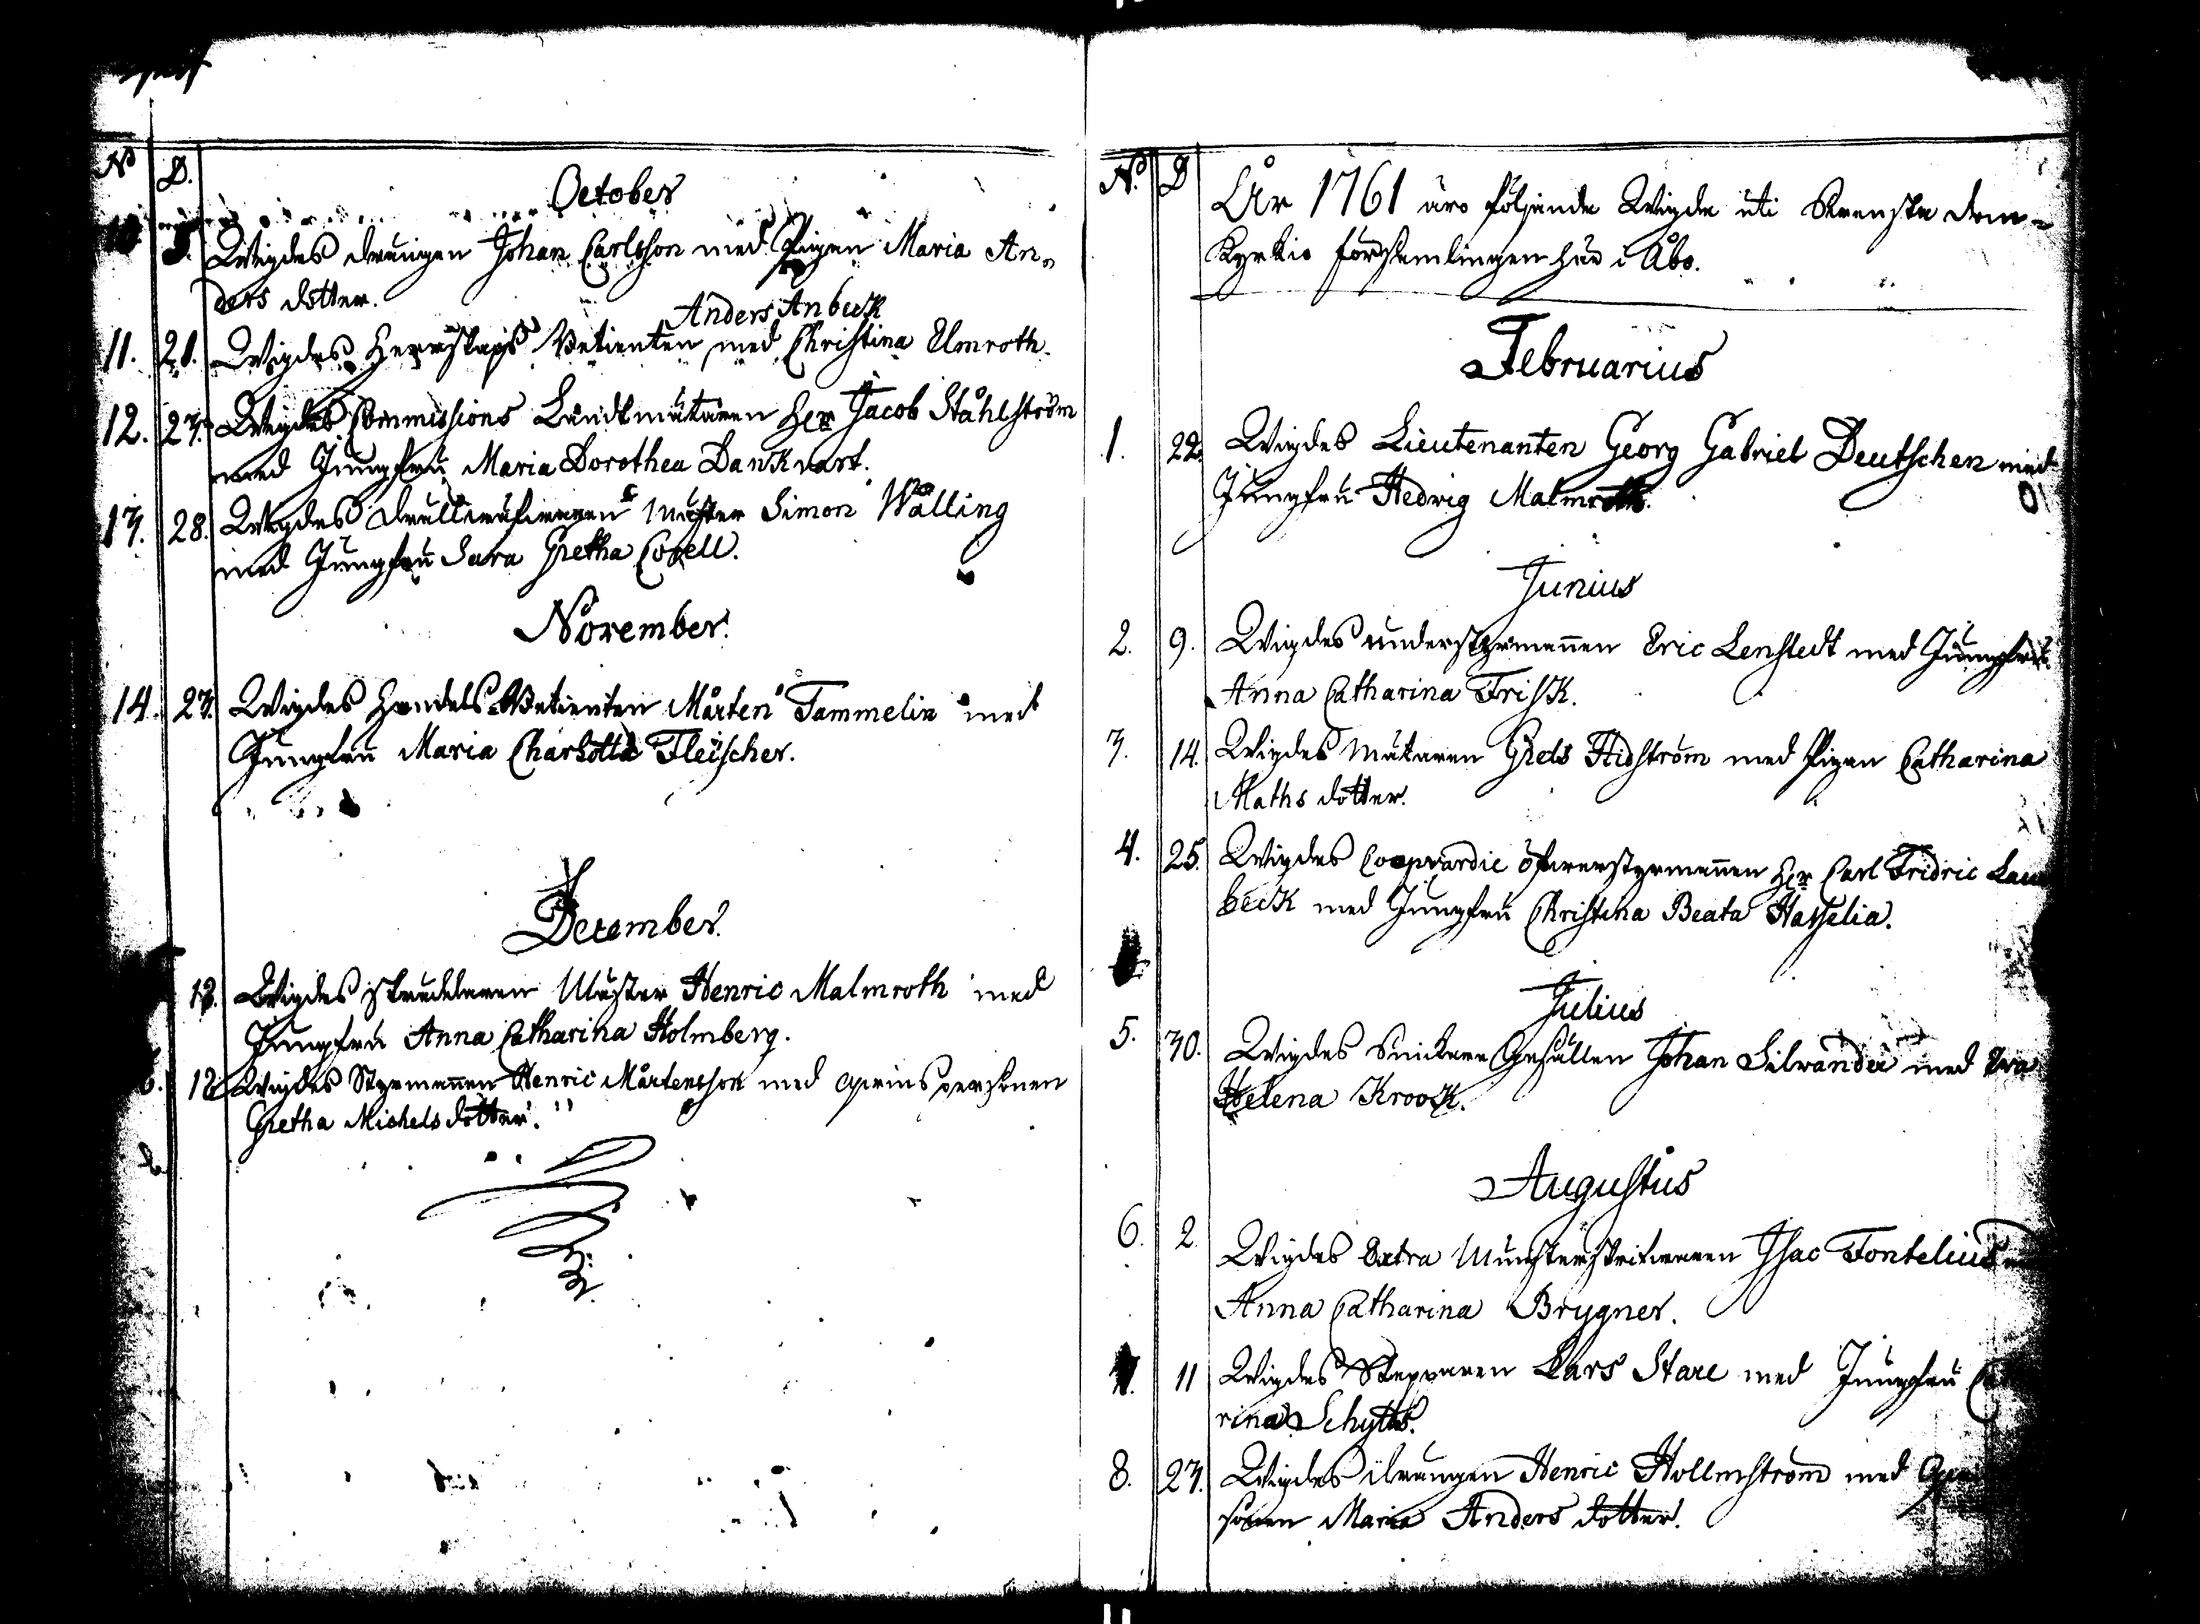 N° D.
October
10. 5. Wigdes drängen Johan Carlsson med Pigan Maria An-
ders dotter.
Anders Anbeck
11. 21. Wigdes Herrskaps Betienten med Christina Elmroth.
12. 23. Wigdes Commissions Landtmätaren Her Jacob Ståhlström
med Jungfru Maria Dorothea Dankvart.
13. 28. Wigdes Mäster Simon Wålling
med Jungfru Sara Gretha Corell.
November.
14. 23. Wigdes Handels Betienten Mårten Tammelin med
Jungfru Maria Charlotta Fleischer.
December.
13. Wigdes Skräddaren Mäster Henric Malmroth med
Jungfru Anna Catharina Holmberg.
6. 18 Wigdes Styrmannen Henric Mårtensson med qwinspersonen
Gretha Michels dotter.
N. D
År 1761 äro följande Wigde uti Swenska dom-
kyrkio församlingen här i Åbo.
Februarius
1. 22. Wigdes Lieutenanten Georg Gabriel Deutschen med
Jungfru Hedvig Malmroth.
Junius
2. 9. Wigdes understyrmannen Eric Lenstedt med Jungfru
Anna Catharina Frisk.
3. 14. Wigdes Mätaren Grels Hidström med Pigan Catharina
Maths dotter.
4. 25. Wigdes Coopvardie öfwerstyrmannen Her Carl Fridric Lau
beck med Jungfru Christina Beata Hasselia.
Julius
5. 30. Wigdes Snickare Gesällen Johan Silvander med Eva
Helena Krook.
Augustus
6. 2. Wigdes Extra Munsterskrifwaren Isac Fontelius
Anna Catharina Brygner.
7. 11 Wigdes Skepparen Lars Stare med Jungfru
rina Schytts.
8. 23. Wigdes drängen Henric Hollmström med
sonen Maria Anders dotter.